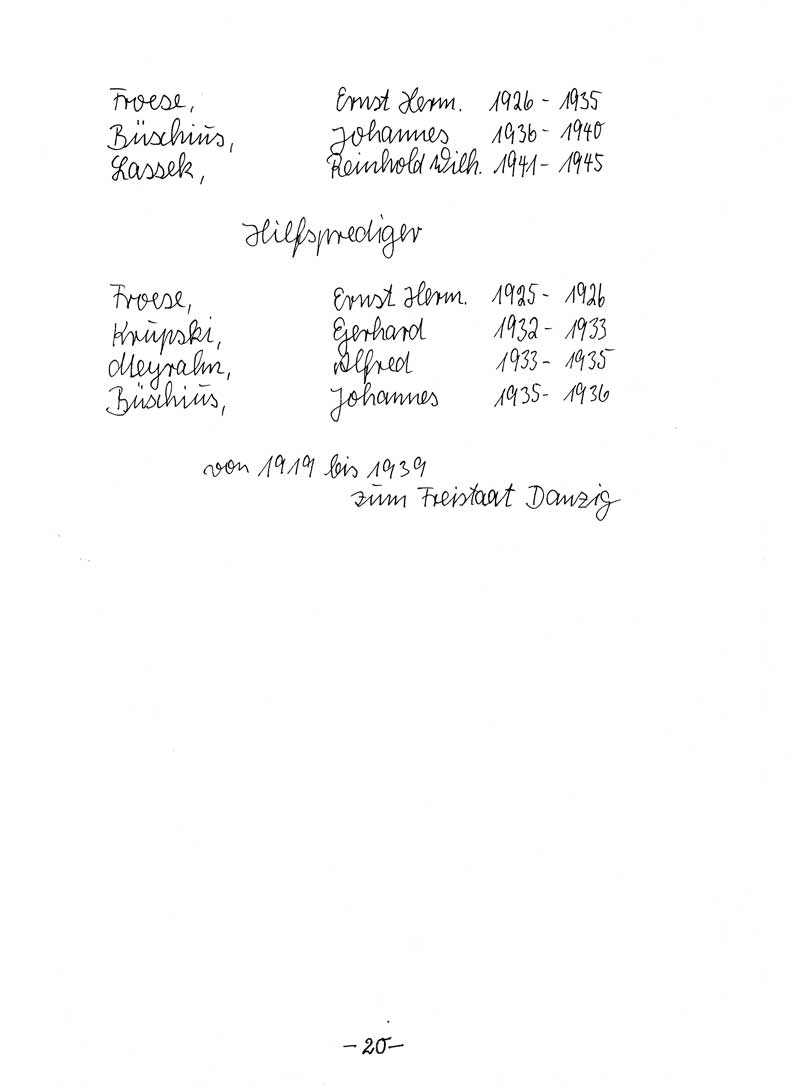 Froese, Ernst Herm. 1926 - 1935
Büschius, Johannes 1936 - 1940
Lassek, Reinhold Wilh. 1941 - 1945
Hilfsprediger
Froese, Ernst Herm. 1925 - 1926
Krupski, Gerhard 1932 - 1933
Meyrahn, Alfred 1933 - 1935
Büschius, Johannes 1935 - 1936
von 1919 bis 1939
zum Freistaat Danzig
- 20 -